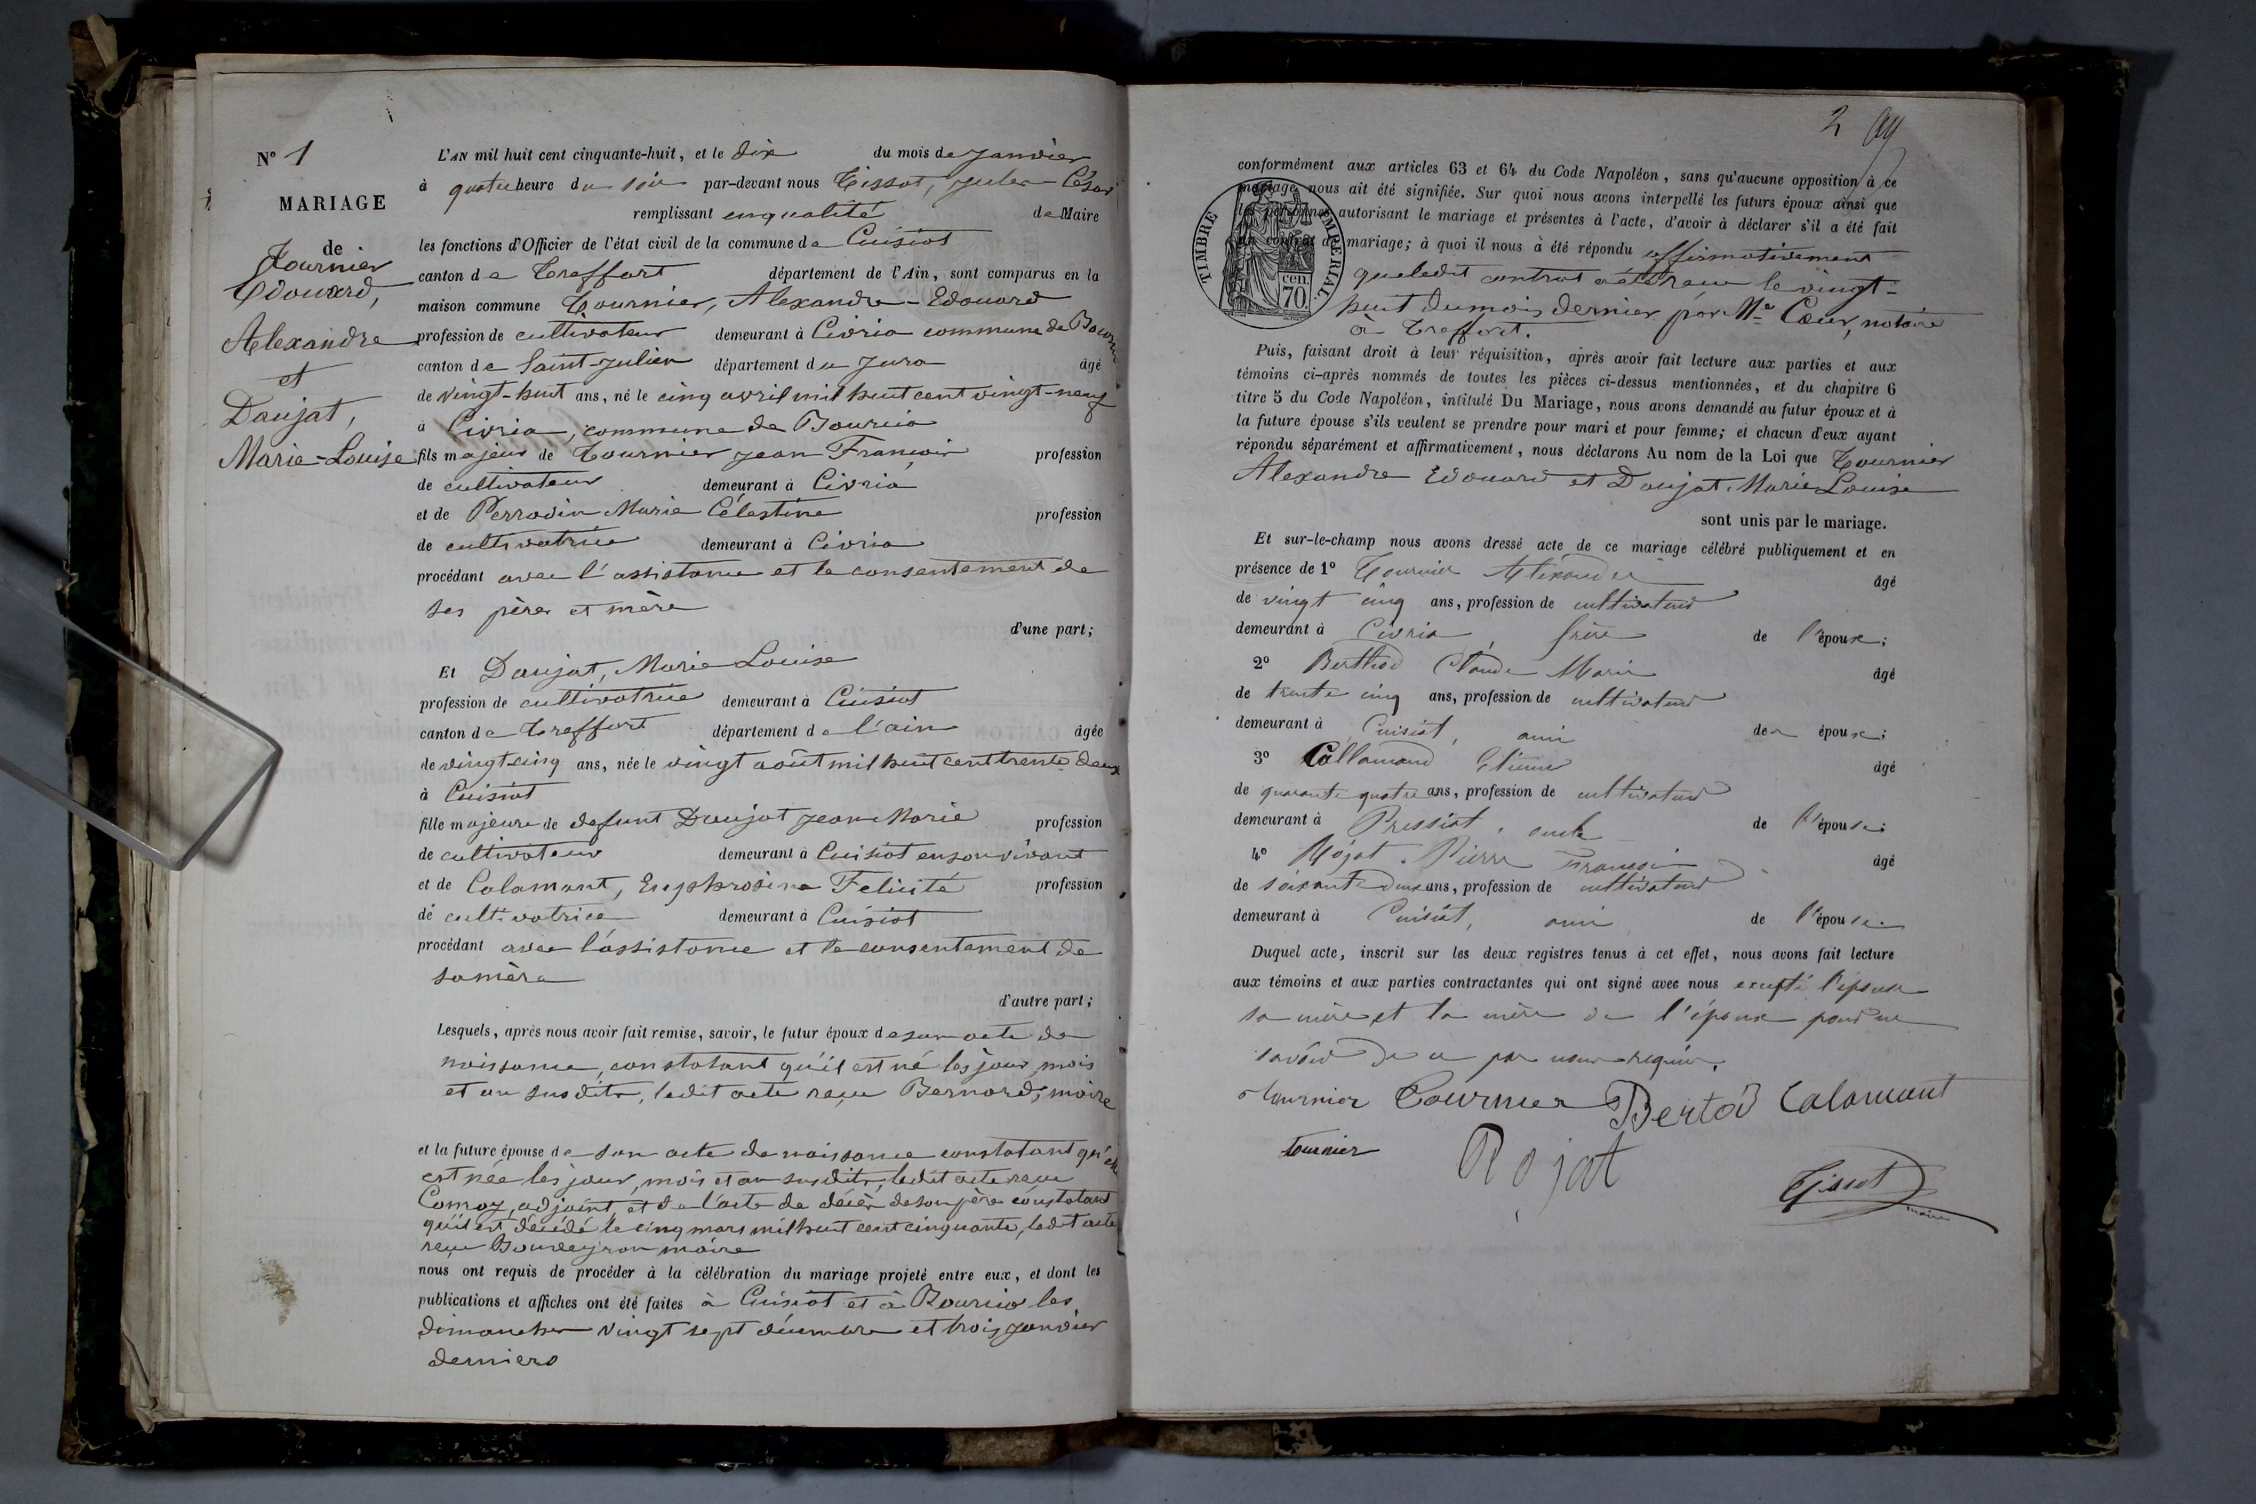 N° 1
MARIAGE
de
Tournier
Edouard,
Alexandre
et
Daujat,
Marie-Louise
L'AN mil huit cent cinquante-huit, et le dix du mois de janvier
à quatre heure du soir par-devant nous Tissot, Jules-César
remplissant en qualité de Maire
les fonctions d'Officier de l'état civil de la commune de Cuisiat
canton de Treffort département de l'Ain, sont comparus en la
maison commune Tournier, Alexandre-Edouard
profession de cultivateur demeurant à Civria commune de Bourcia
canton de Saint-Julien département du Jura âgé
de vingt-huit ans, né le cinq avril mil huit cent vingt-neuf
à Civria, commune de Bourcia
fils majeur de Tournier Jean François profession
de cultivateur demeurant à Civria
et de Perrodin Marie Célestine profession
de cultivatrice demeurant à Civria
procédant avec l'assistance et le consentement de
ses père et mère
d'une part;
Et Daujat, Marie Louise
profession de cultivatrice demeurant à Cuisiat
canton de Treffort département de l'ain âgée
de vingt-cinq ans, née le vingt août mil huit cent trente deux
à Cuisiat
fille majeure de defunt Daujat Jean Marie profession
de cultivateur demeurant à Cuisiat en son vivant
et de Calamant, Euphrosine Felicité profession
de cultivatrice demeurant à Cuisiat
procédant avec l'assistance et le consentement de
sa mère
d'autre part;
Lesquels, après nous avoir fait remise, savoir, le futur époux de son acte de
naissance, constatant qu'il est né les jour, mois
et an susdits, ledit acte reçu Bernard, maire
et la future épouse de son acte de naissance constatant qu'elle
est née les jour, mois et an susdits, ledit acte reçu
Comoz, adjoint, et de l'acte de décès de son père constatant
qu'il est décédé le cinq mars mil huit cent cinquante, ledit acte
reçu Bouveyron maire
nous ont requis de procéder à la célébration du mariage projeté entre eux, et dont les
publications et affiches ont été faites à Cuisiat et à Bourcia les
dimanches vingt sept décembre et trois janvier
derniers
2
conformément aux articles 63 et 64 du Code Napoléon, sans qu'aucune opposition à ce
mariage nous ait été signifiée. Sur quoi nous avons interpellé les futurs époux ainsi que
les personnes autorisant le mariage et présentes à l'acte, d'avoir à déclarer s'il a été fait
un contrat de mariage; à quoi il nous à été répondu affirmativement
que ledit contrat a été reçu le vingt-
huit du mois dernier par Me Cœur, notaire
à Treffort.
TIMBRE IMPERIAL
70 cen.
Puis, faisant droit à leur réquisition, après avoir fait lecture aux parties et aux
témoins ci-après nommés de toutes les pièces ci-dessus mentionnées, et du chapitre 6
titre 5 du Code Napoléon, intitulé Du Mariage, nous avons demandé au futur époux et à
la future épouse s'ils veulent se prendre pour mari et pour femme; et chacun d'eux ayant
répondu séparément et affirmativement, nous déclarons Au nom de la Loi que Tournier
Alexandre Edouard et Daujat, Marie Louise
sont unis par le mariage.
Et sur-le-champ nous avons dressé acte de ce mariage célébré publiquement et en
présence de 1° Tournier Aléxandre âgé
de vingt cinq ans, profession de cultivateur
demeurant à Civria, frère de l'époux;
2° Berthod Claude Marie âgé
de trente cinq ans, profession de cultivateur
demeurant à Cuisiat, ami de épouse;
3° Callamand Etienne âgé
de quarante quatre ans, profession de cultivateur
demeurant à Pressiat, oncle de l'épouse;
4° Rojat Pierre François âgé
de soixante deux ans, profession de cultivateur
demeurant à Cuisiat, ami de l'épouse.
Duquel acte, inscrit sur les deux registres tenus à cet effet, nous avons fait lecture
aux témoins et aux parties contractantes qui ont signé avec nous excepté l'épouse
sa mère et la mère de l'époux pour ne
savoir de ce par nous requis.
Tournier Tournier Bertod Calamant
tournier Rojat Tissot
maire